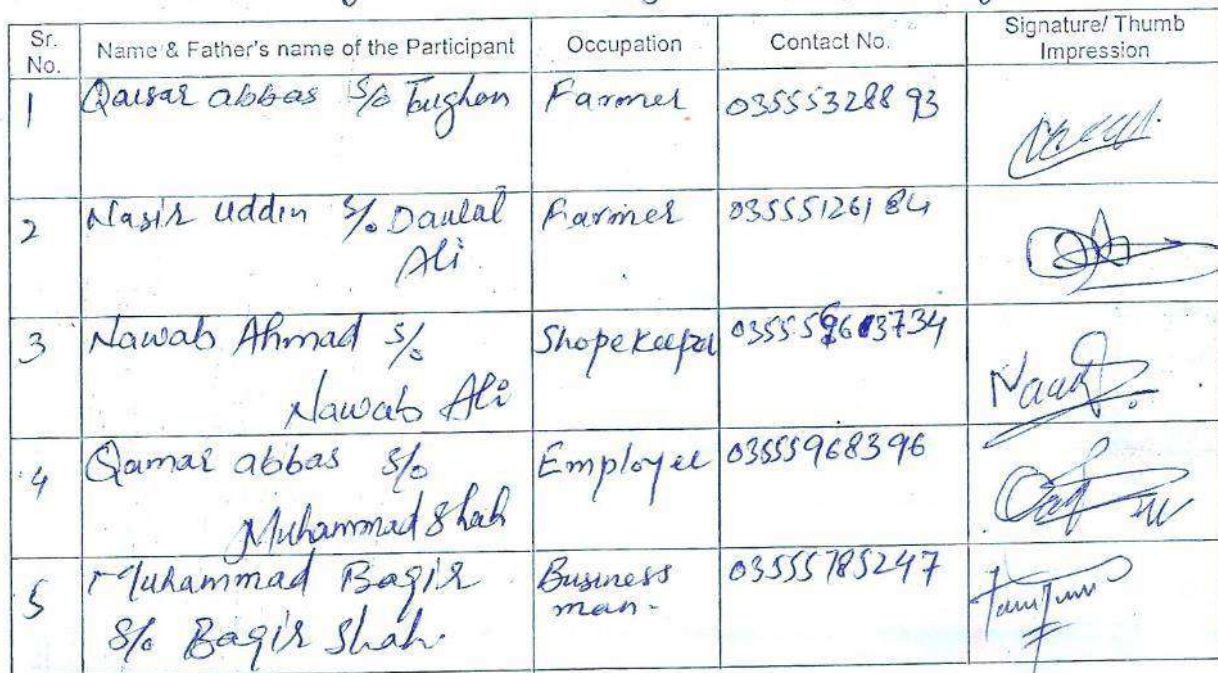 Sr. No.
Name & Father's name of the Participant
Occupation
Contact No.
Signature/ Thumb Impression
1
Qaisar abbas S/o Tughon
Farmer
03555328893
2
Nasir uddin S/o Daulat
Ali
Farmer
03555126184
3
Nawab Ahmad S/o
Nawab Ali
Shopekeeper
4
Qamar abbas S/o
Muhammad Shah
Employee
03555968396
5
Muhammad Baqir
S/o Baqir Shah
Business
man-
03555785247